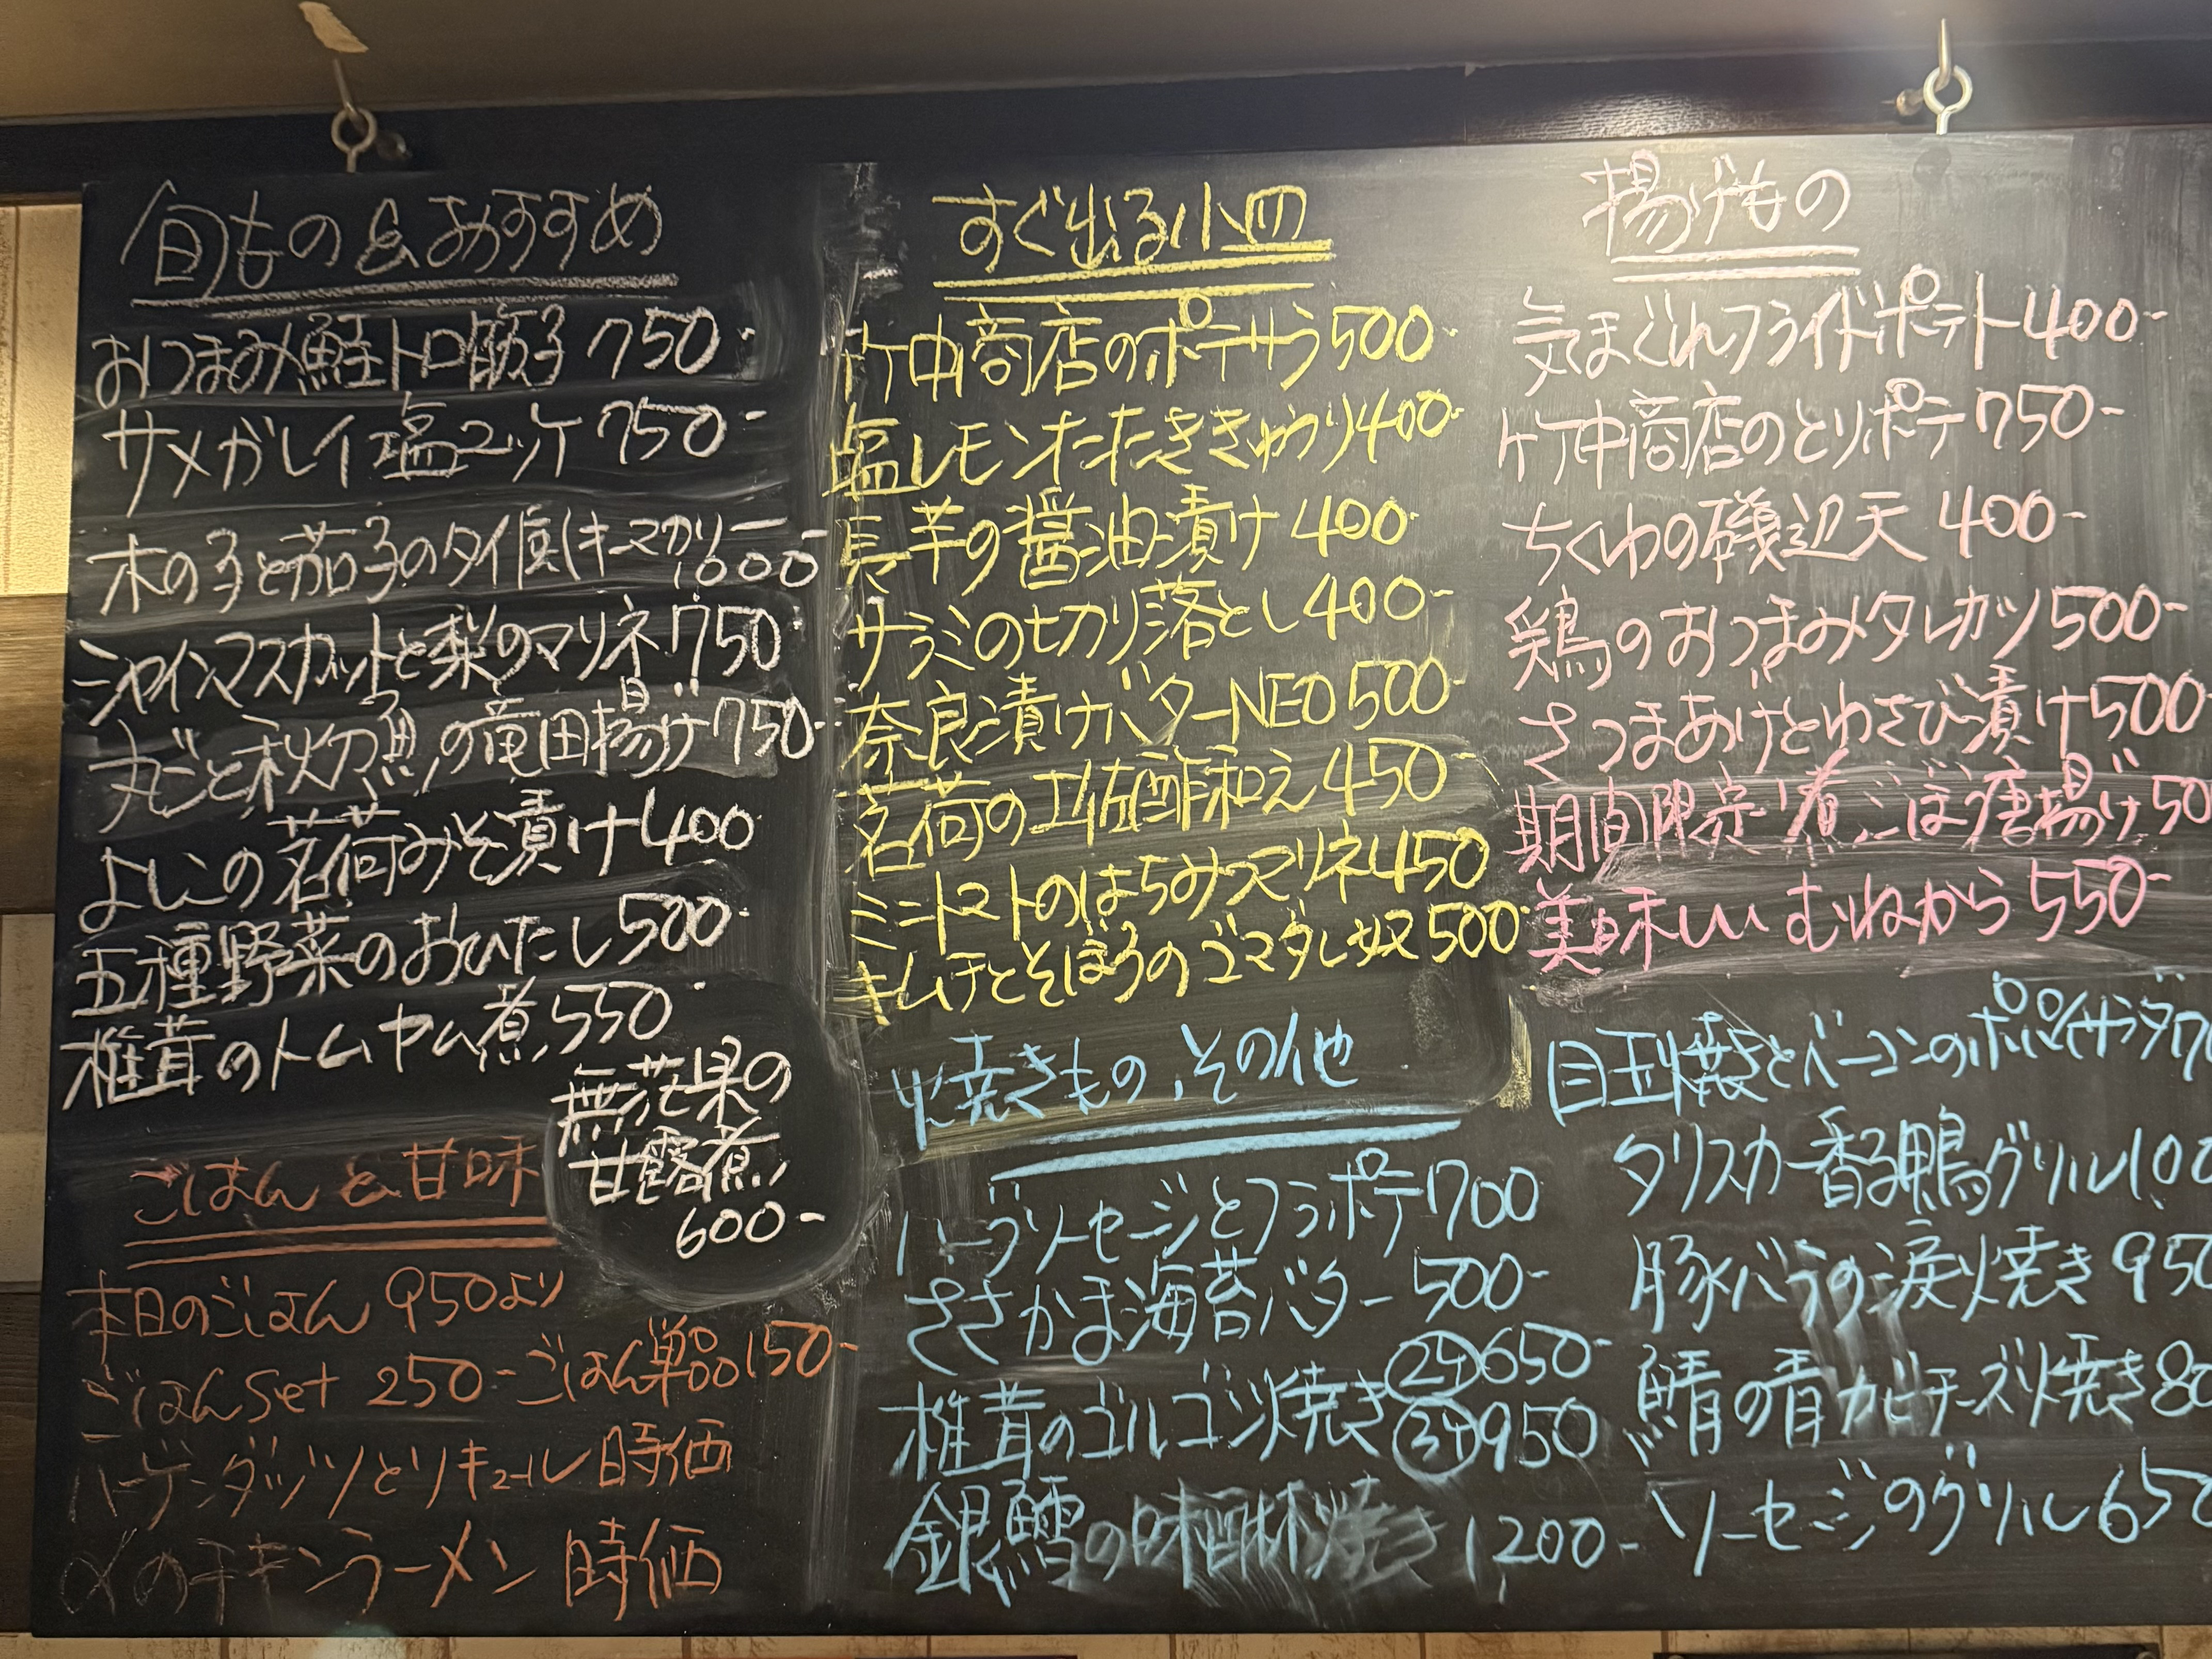 旬もの&おすすめ
おつまみ鮭トロ筋子 750-
サメガレイ塩ユッケ 750-
木の子と茄子のタイ風キーマカリー
1600-
シャインマスカットと梨のマリネ 750-
丸ごと秋刀魚の竜田揚げ 750-
よしこの茗荷みそ漬け 400
五種野菜のおひたし 500-
椎茸のトムヤム煮 550-
無花果の
甘露煮
600-
ごはんと甘味
本日のごはん 950より
ごはんSet 250- ごはん単品150-
ハーゲンダッツとリキュール 時価
〆のチキンラーメン 時価
すぐ出る小皿
竹中商店のポテサラ 500-
塩レモンたたききゅうり 400-
長芋の醤油漬け 400-
サラミの切り落とし 400-
奈良漬けバターNEO 500-
茗荷の土佐酢和え 450-
ミニトマトのはちみつマリネ 450
キムチとそぼろのゴマダレ奴 500-
揚げもの
気まぐれフライドポテト 400-
竹中商店のとりポテ 750-
ちくわの磯辺天 400-
鶏のおつまみタレカツ 500-
さつまあげとわさび漬け 500
期間限定 煮ごぼう唐揚げ 50
美味しい むねから 550-
焼きもの、その他
ハーブソーセージとフラポテ 700
ささかま海苔バター 500-
椎茸のゴルゴン焼き
②ケ 650-
③ケ 950
銀鱈の味醂焼き 1200-
目玉焼きとベーコンのポパイサラダ
タリスカー香る鴨グリル 100
豚バラの炭火焼き 950
鯖の青カビチーズ焼き 80
ソーセージのグリル 650